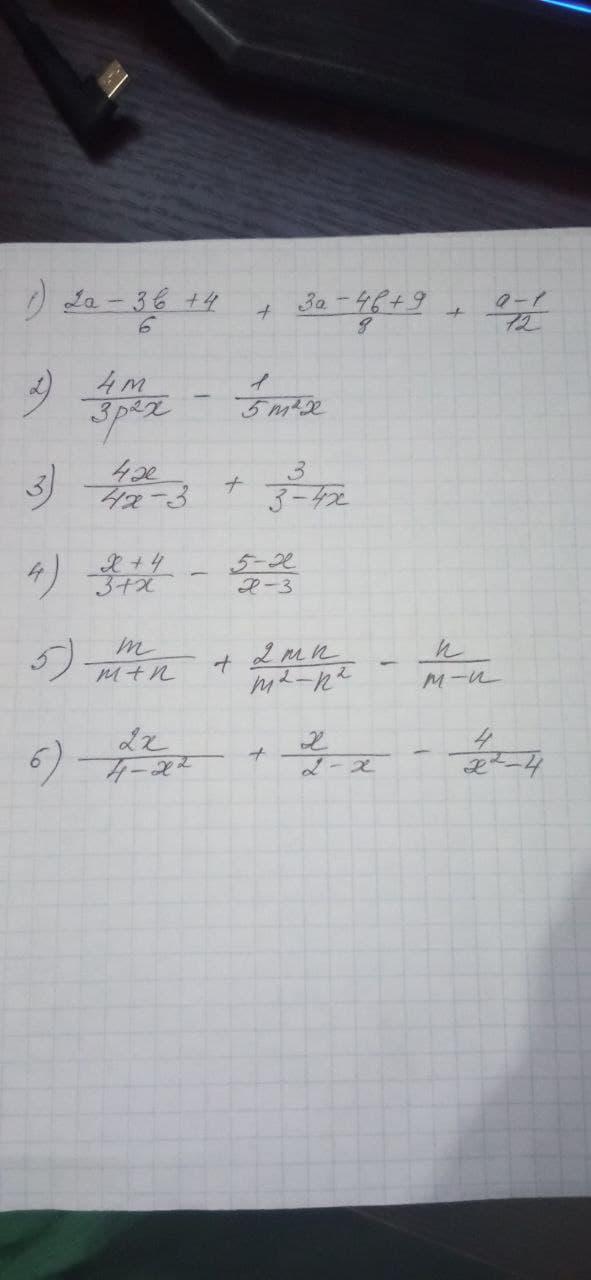 1) (2a - 3b + 4)/6 + (3a - 4b + 9)/8 + (a - 1)/12
2) 4m/(3p²x) - 1/(5m²x)
3) 4x/(4x - 3) + 3/(3 - 4x)
4) (x + 4)/(3 + x) - (5 - x)/(x - 3)
5) m/(m + n) + 2mn/(m² - n²) - n/(m - n)
6) 2x/(4 - x²) + x/(2 - x) - 4/(x² - 4)